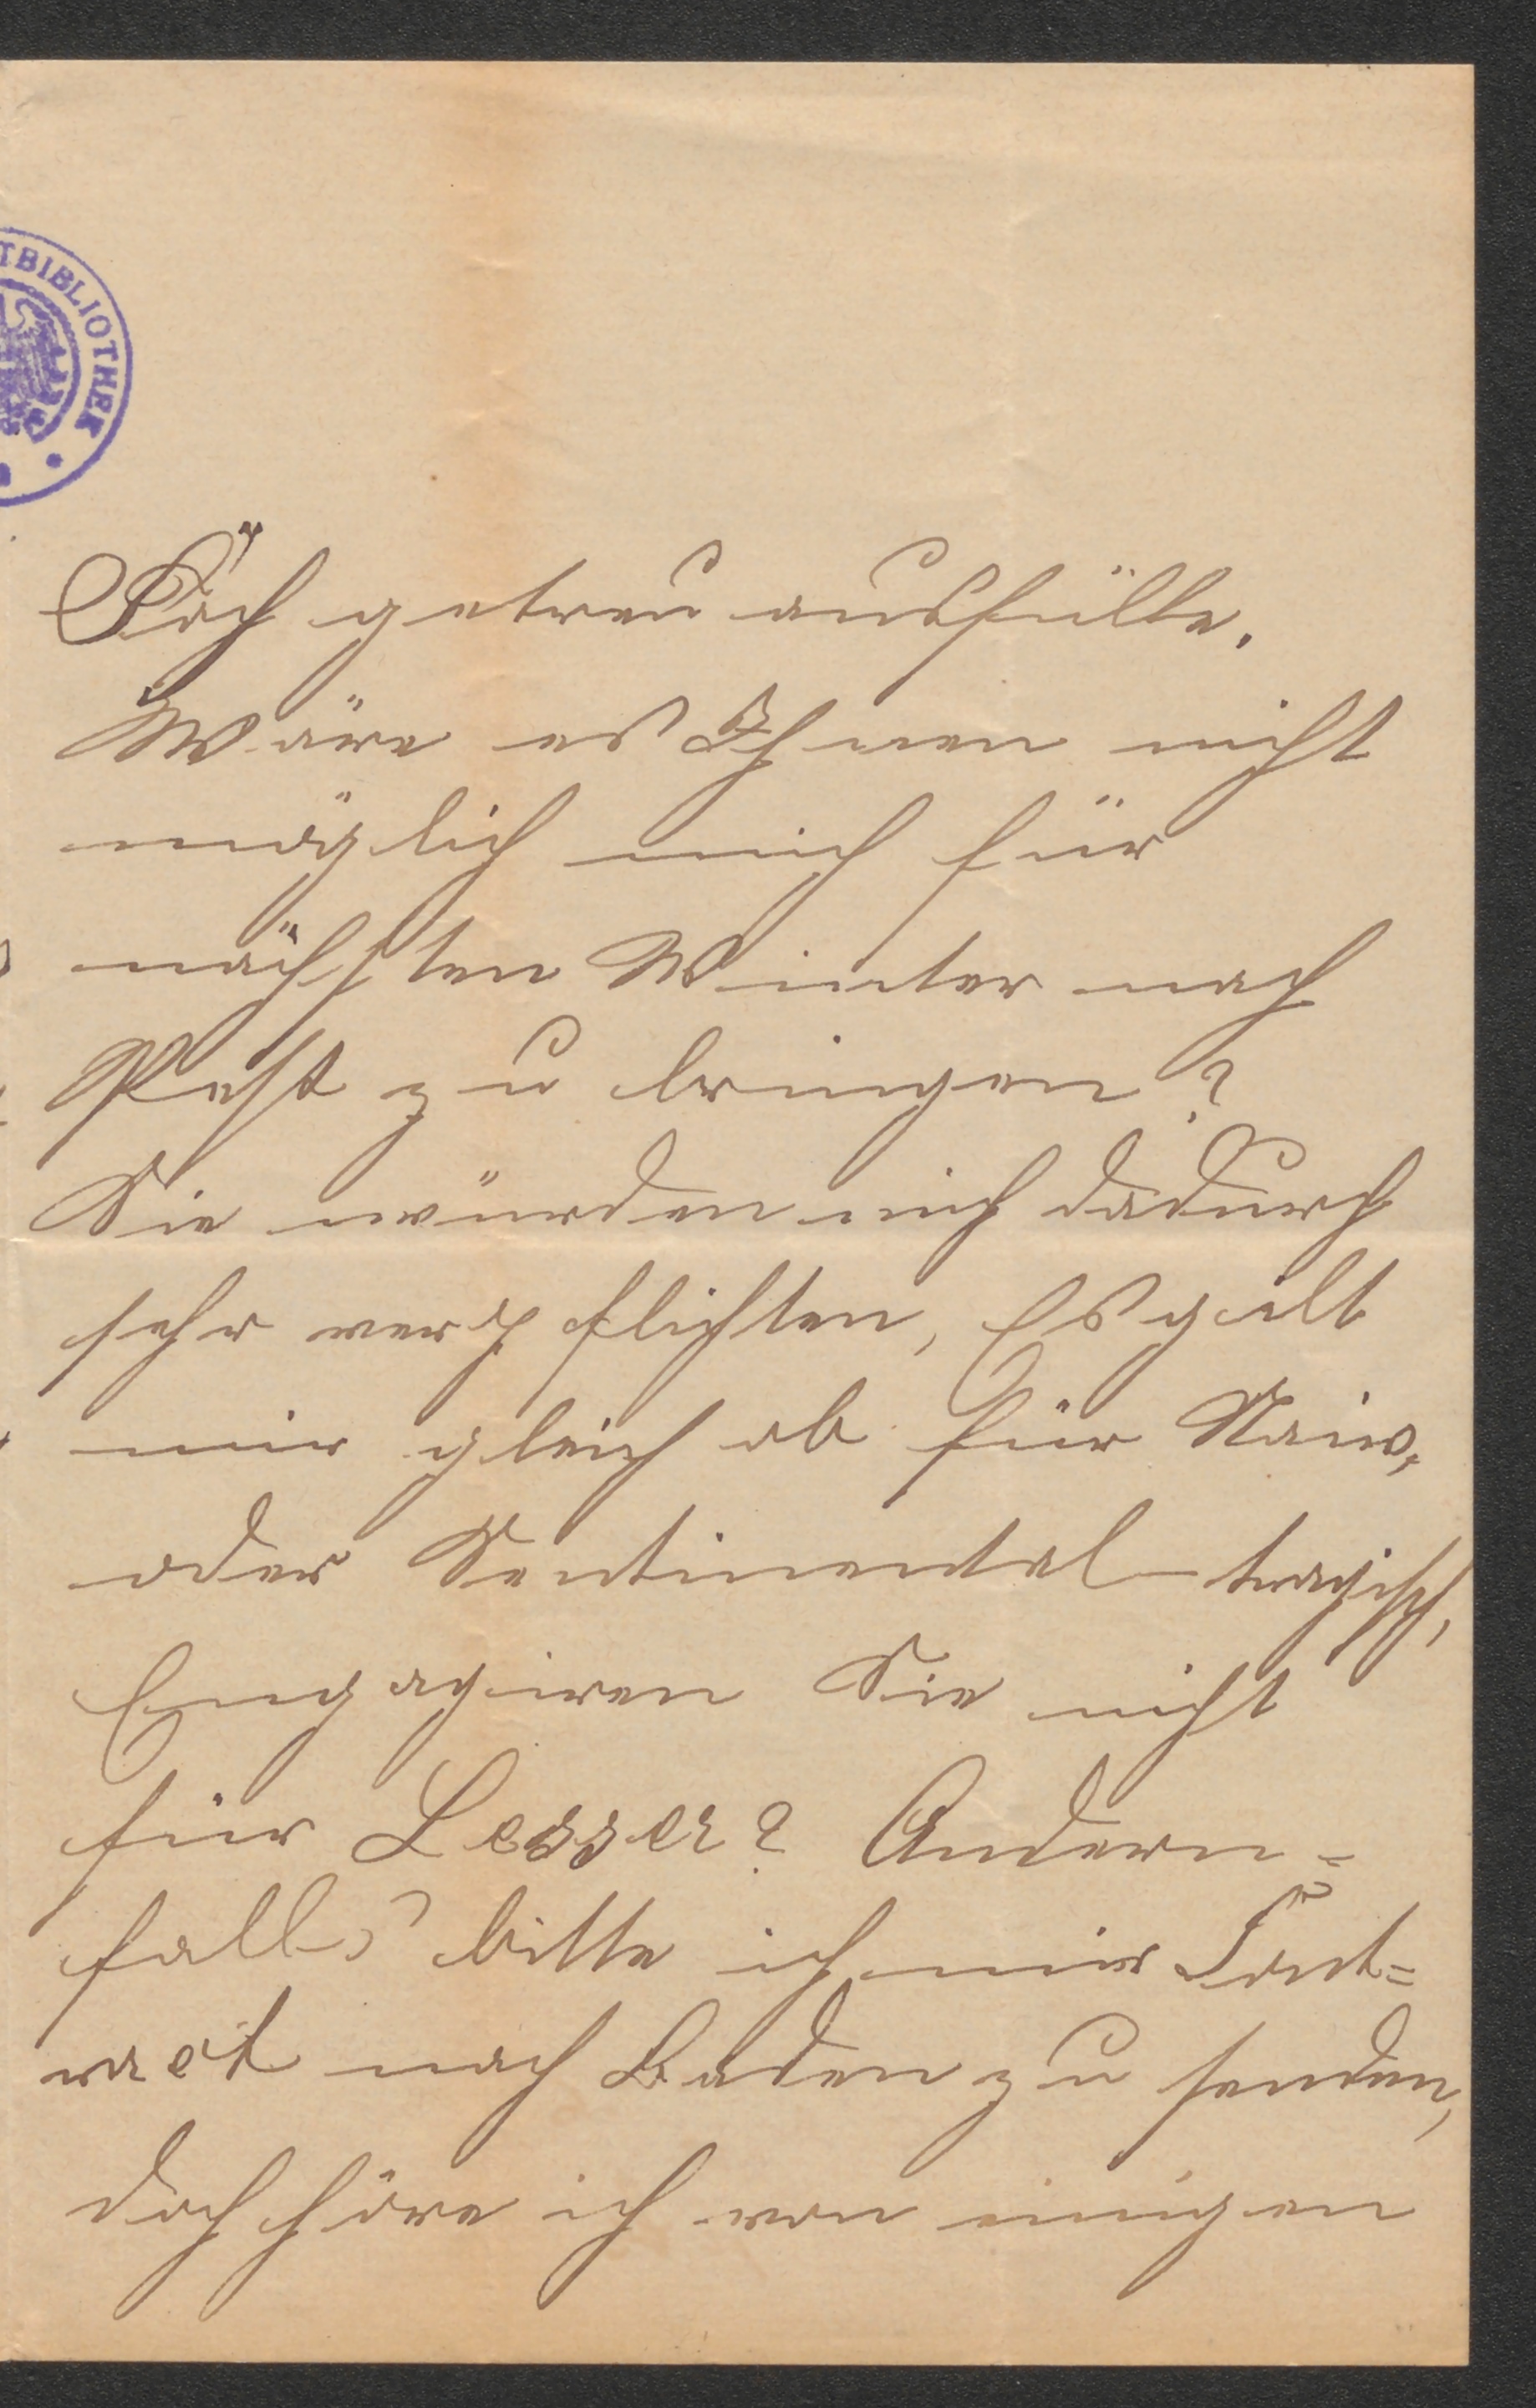 TBIBLIOTHEK
Fach getreu ausfülle.
Wäre es Ihnen nicht
möglich mich für
nächsten Winter nach
Pest zu bringen?
Sie würden mich dadurch
sehr verpflichten, Es gilt
mir gleich ob für Naiv,
oder Sentimental-tragisch,
Engagiren Sie nicht
für Lesser? Andern=
falls bitte ich mir Cont=
ract nach Baden zu senden,
doch höre ich von einigen